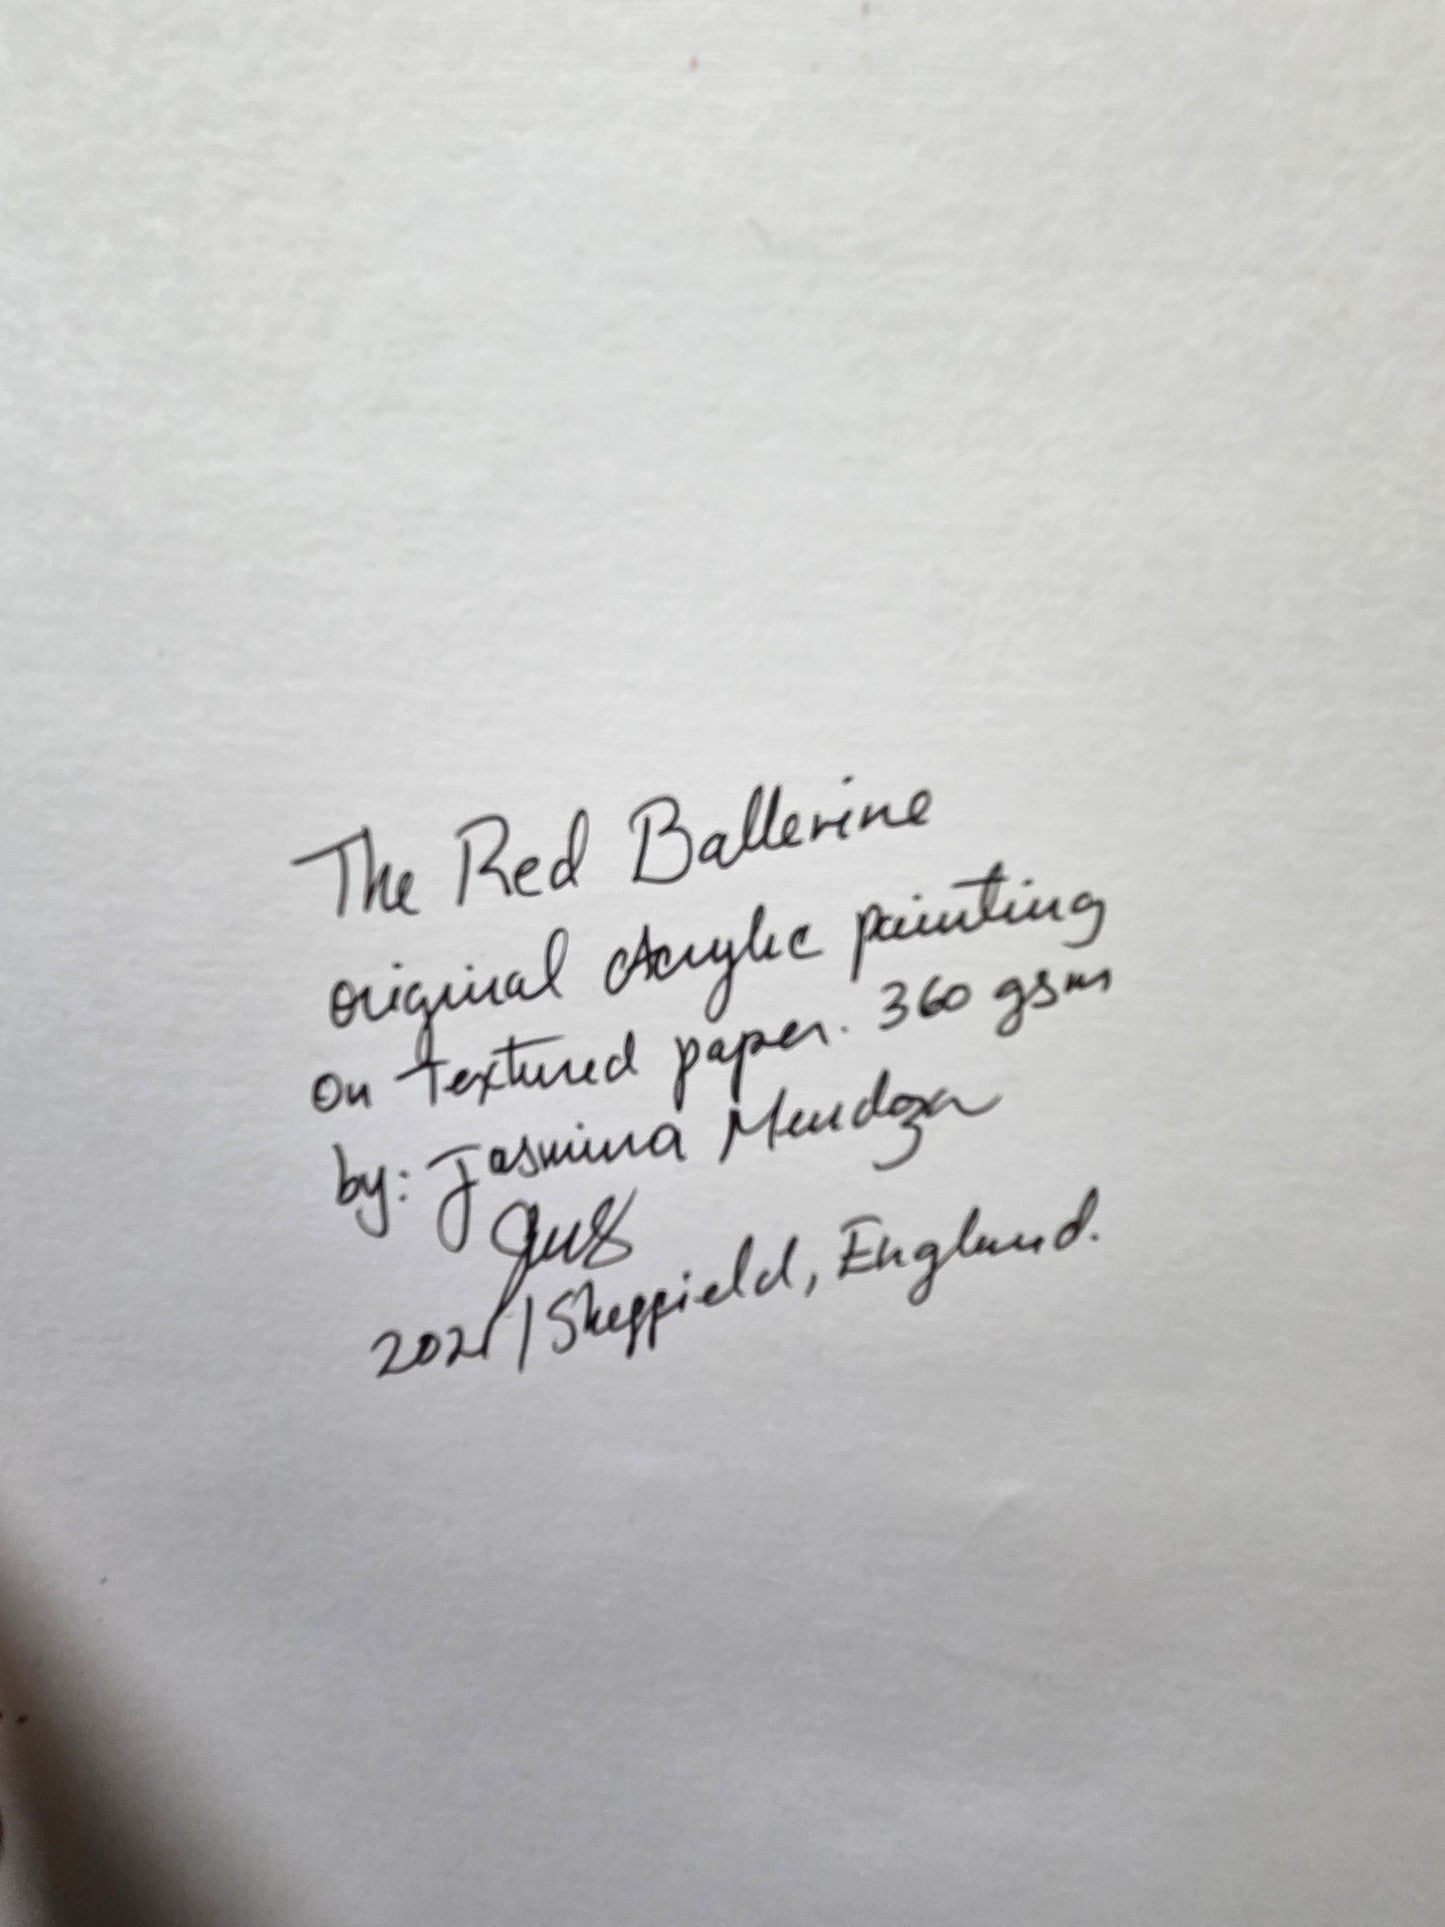 The Red Ballerine
original Acrylic painting
on textured paper. 360 gsm
by: Jasmina Mendoza
2021 | Sheffield, England.